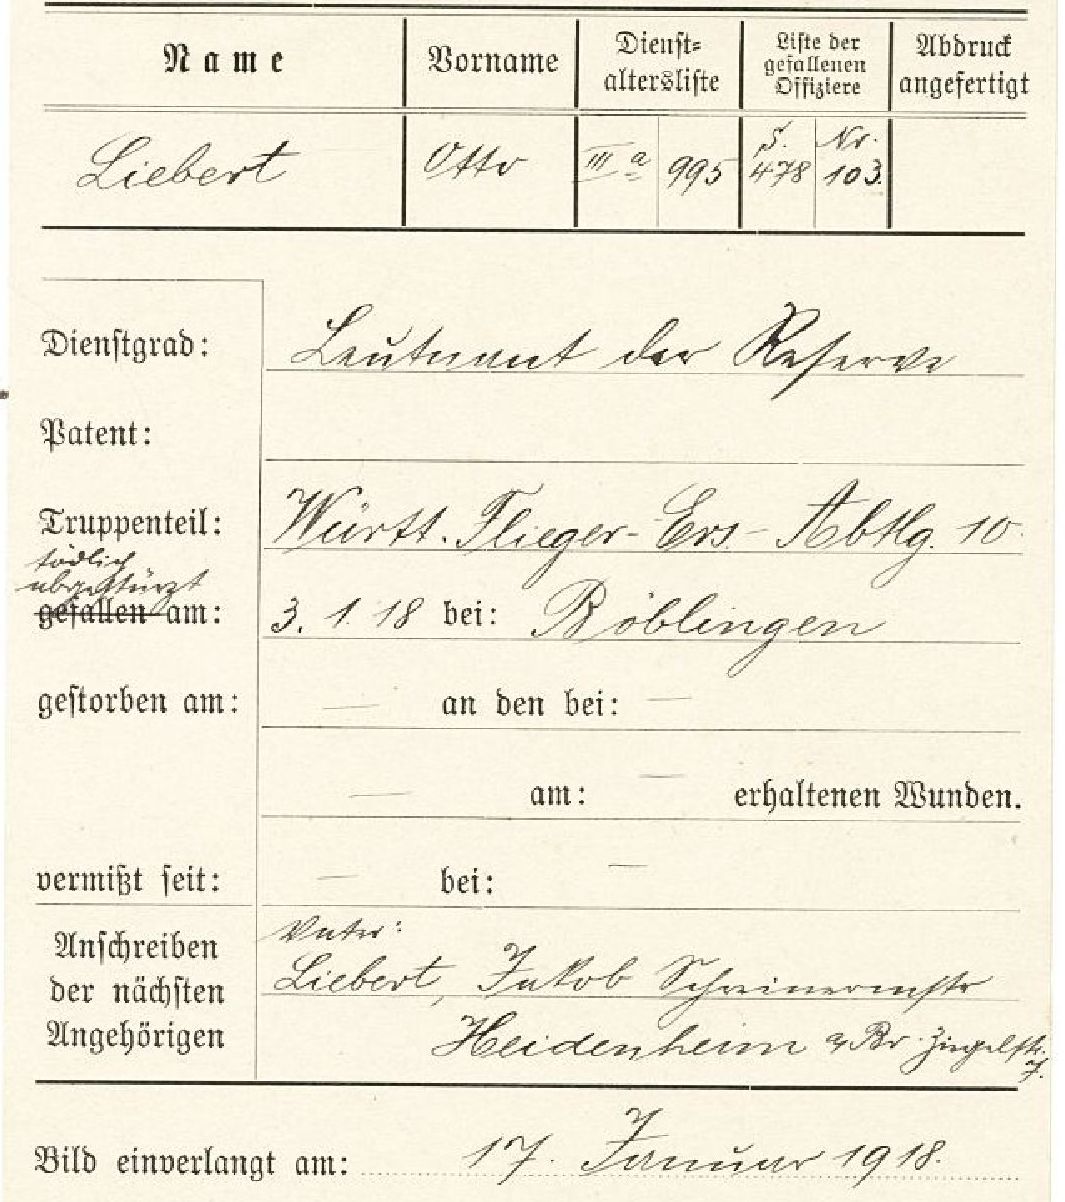 Name Vorname Dienst= altersliste Liste der gefallenen Offiziere Abdruck angefertigt
Liebert Otto III a 995 S. 478 Nr. 103.
Dienstgrad: Leutnant der Reserve
Patent:
Truppenteil: Württ. Flieger-Ers.-Abtlg. 10.
tödlich
abgestürzt
gefallen am: 3. 1. 18 bei: Böblingen
gestorben am: — an den bei: —
— am: — erhaltenen Wunden.
vermißt seit: — bei: —
Vater:
Anschreiben
der nächsten Liebert, Jakob Schreinermstr
Angehörigen Heidenheim a. Br. Ziegelstr. 7.
Bild einverlangt am: 17. Januar 1918.